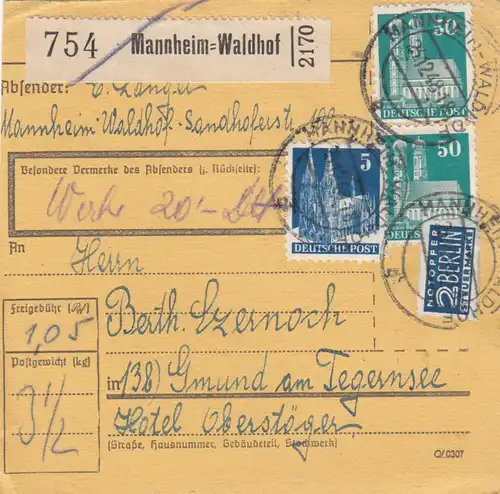 754 Mannheim=Waldhof 2170
Absender: C. Langer
Mannheim Waldhof-Sandhoferstr
Besondere Vermerke des Absenders (s. Rückseite):
Wert 20.- DM
An
Herrn
Berth. Czernoch
in (13b) Gmund am Tegernsee
Hotel Oberstöger
(Straße, Hausnummer, Gebäudeteil, Stockwerk)
Freigebühr
1,05
Postgewicht (kg)
3 1/2
50
DEUTSCHE POST
50
5
DEUTSCHE POST
NOTOPFER
2 BERLIN
STEUERMARKE
MANNHEIM-WALDHOF
MANNHEIM